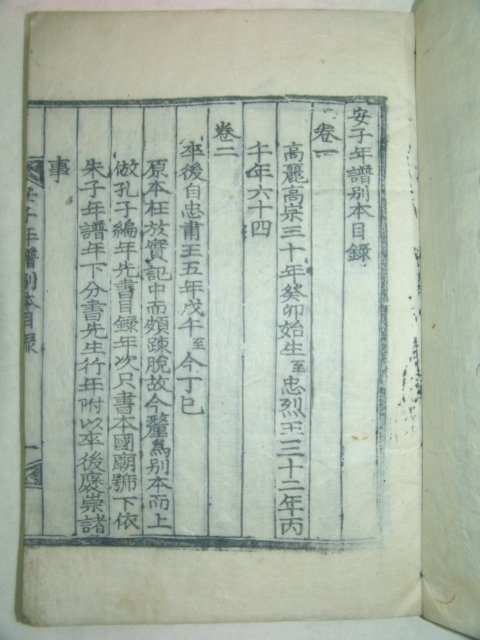 安子年譜別本目錄
卷一
高麗高宗三十年癸卯始生至忠烈王三十二年丙
午年六十四
卷二
卒後自忠肅王五年戊午至今丁巳
原本在於實記中而頗疎脫故今釐爲別本而上
倣孔子編年先書目錄年次只書本國廟號下依
朱子年譜年下分書先生行年附以卒後褒崇諸
事
安子年譜別本目錄
一